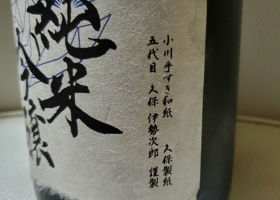 小川手すき和紙 久保製紙
五代目 久保 伊勢次郎 謹製
純米
大吟醸